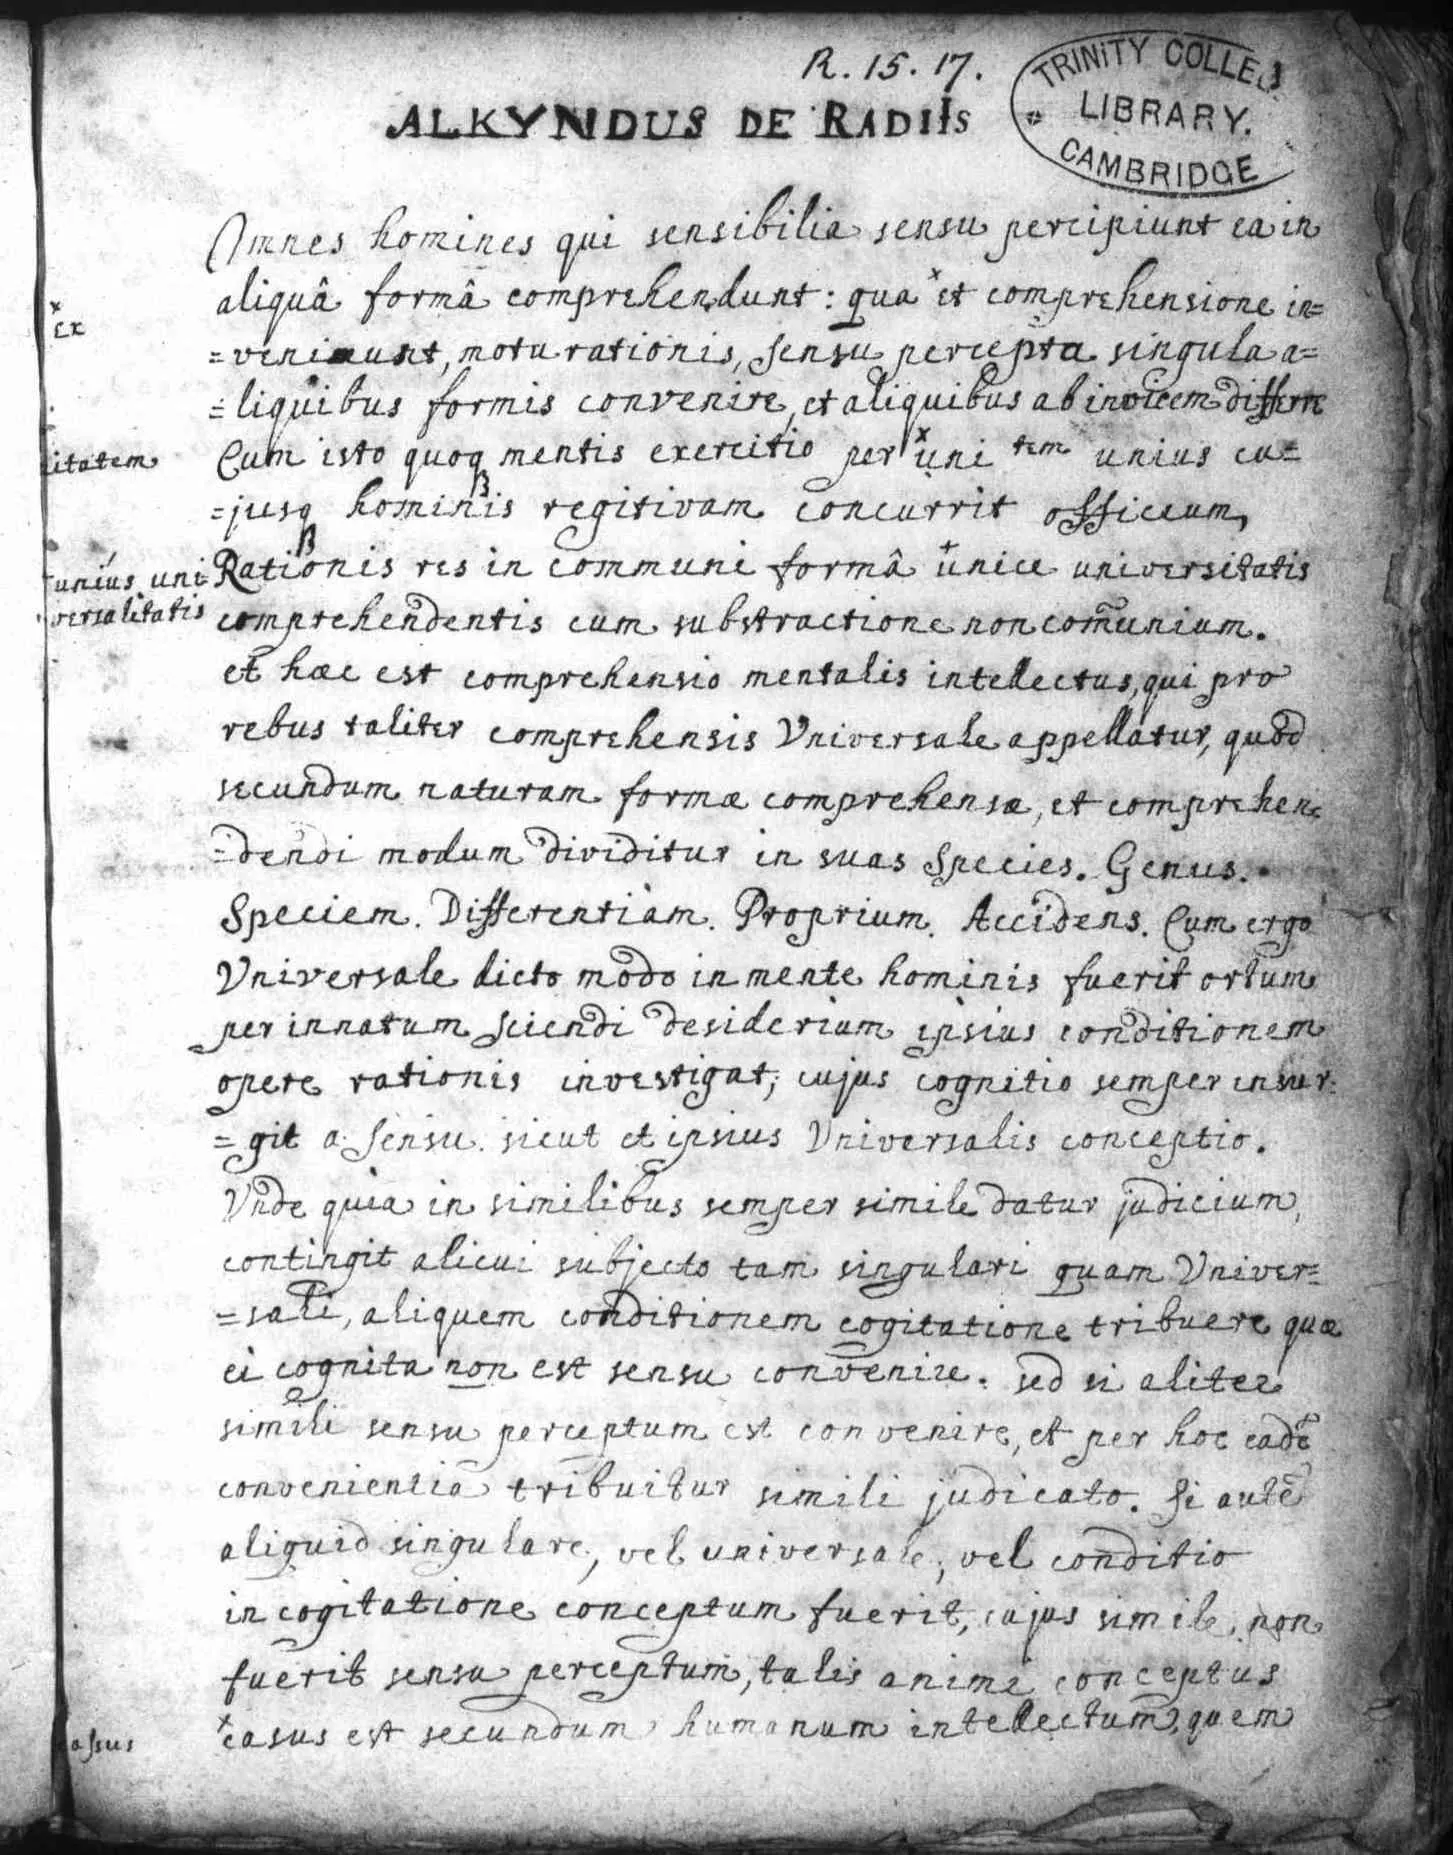 R. 15. 17.
TRINITY COLLEG
LIBRARY.
CAMBRIDGE
ALKYNDUS DE RADIIS
Omnes homines qui sensibilia sensu percipiunt ea in
aliquâ formâ comprehendunt: qua x et comprehensione in=
x
ex
=veniunt, motu rationis, sensu percepta singula a=
=liquibus formis convenire, et aliquibus ab invicem differre
itatem
Cum isto quoq mentis exercitio per x uni tem unius cu=
=jusq hominis regitivam concurrit officium,
unius uni
versalitatis
Rationis res in communi formâ + unice universitatis
comprehendentis cum substractione non com̃unium.
et hæc est comprehensio mentalis intellectus, qui pro
rebus taliter comprehensis Universale appellatur, quod
secundum naturam formæ comprehensæ, et comprehen=
=dendi modum dividitur in suas Species. Genus.
Speciem. Differentiam. Proprium. Accidens. Cum ergo
Universale dicto modo in mente hominis fuerit ortum
per innatum sciendi desiderium ipsius conditionem
opere rationis investigat; cujus cognitio semper insur=
=git a sensu. sicut et ipsius Universalis conceptio.
Unde quia in similibus semper simile datur judicium,
contingit alicui subjecto tam singulari quam Univer=
=sali, aliquem conditionem cogitatione tribuere quæ
ei cognita non est sensu convenire. sed si aliter
simili sensu perceptum est convenire, et per hoc eadẽ
convenientia tribuitur simili judicato. Si autẽ
aliquid singulare, vel universale, vel conditio
in cogitatione conceptum fuerit, cujus simile non
fuerit sensu perceptum, talis animi conceptus
assus
x casus est secundum humanum intellectum, quem